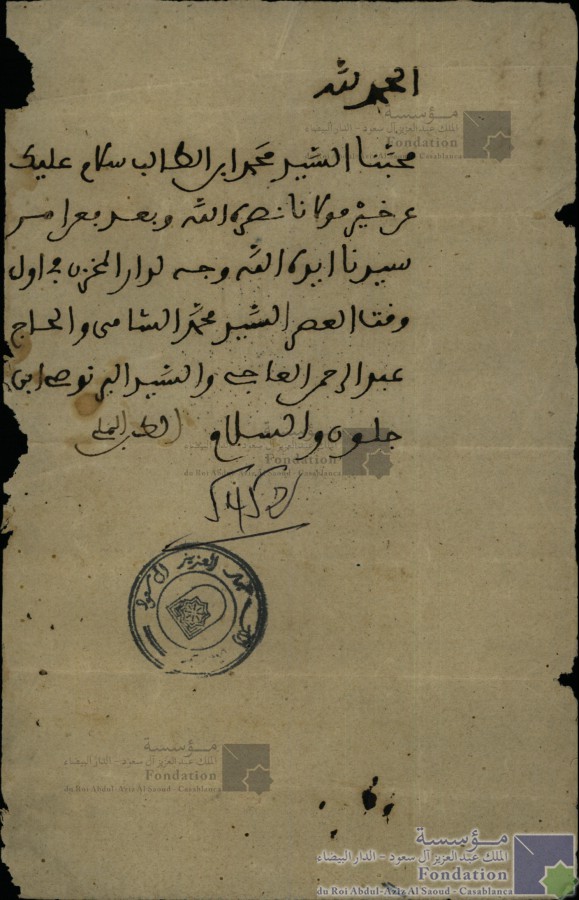 الحمد لله
محبنا السيد محمد ابن الطالب سلام عليك
عن خير مولانا نصره الله وبعد فعن امر
سيدنا ايده الله وجه لدار المخزن في اول
وقت العصر السيد محمد الشامي والحاج
عبد الرحمن العاجي والسيد البرنوصي ابن
جلون والسلام
عبد العزيز آل سعود
مؤسسة
الملك عبد العزيز آل سعود - الدار البيضاء
Fondation
du Roi Abdul-Aziz Al Saoud - Casablanca